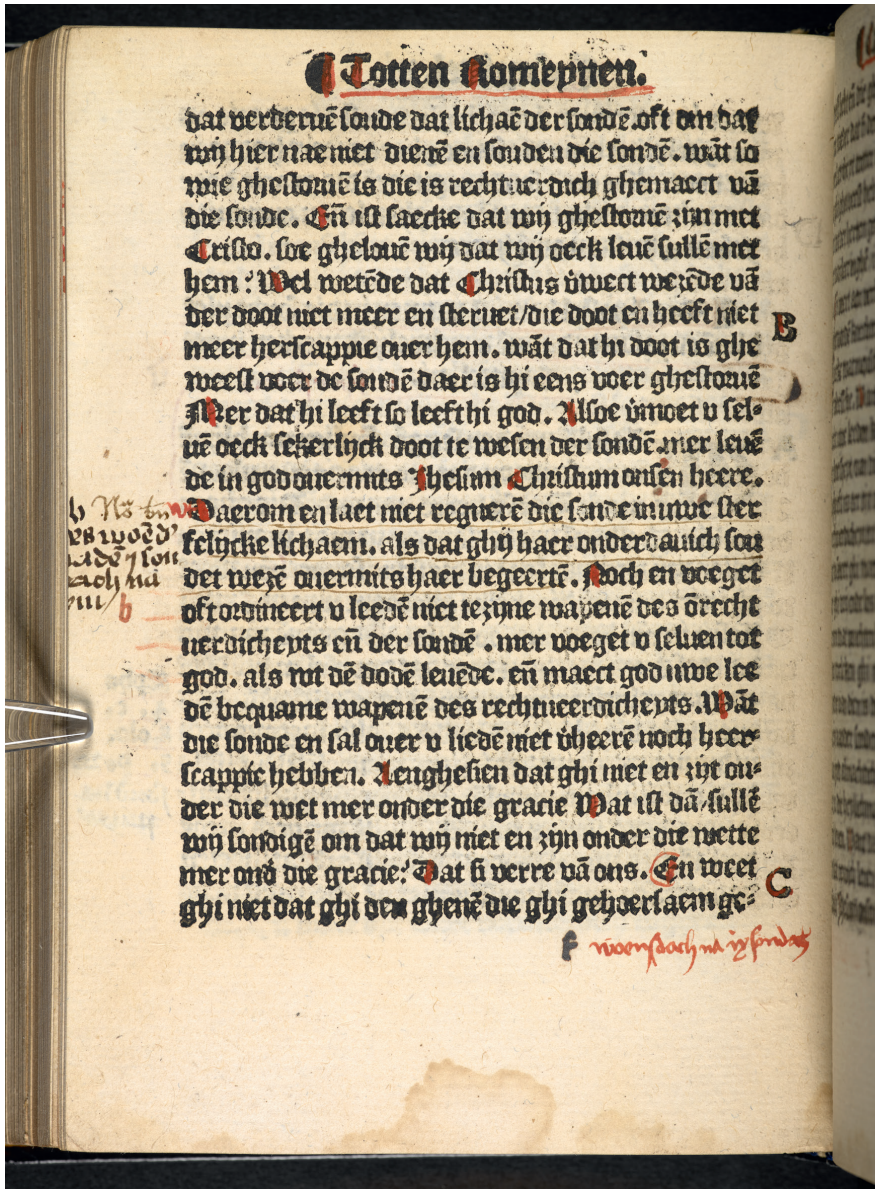 ¶ Totten Romeynen.
dat verderuē soude dat lichaē der sondē. oft om dat
wij hier nae niet dienē en souden die sondē. wāt so
wie ghestoruē is die is rechtuerdich ghemaect vā
die sonde. Eñ ist saecke dat wij ghestoruē zijn met
Cristo. soe ghelouē wij dat wij oeck leuē sullē met
hem? Wel wetēde dat Christus v̄wect wezēde vā
der doot niet meer en steruet/die doot en heeft niet
B
meer herscappie ouer hem. wāt dat hi doot is ghe
weest voer de sondē daer is hi eens voer ghestoruē
Mer dat hi leeft so leeft hi god. Alsoe v̄moet v sel-
uē oeck sekerlijck doot te wesen der sondē. mer leuē
de in god ouermits Jhesum Christum onsen heere.
Daerom en laet niet regnerē die sonde in uwe ster
felijcke lichaem. als dat ghij haer onderdanich sou
det wezē ouermits haer begeertē. Noch en voeget
oft ordineert v leedē niet te zijne wapenē des ōrecht
uerdicheyts eñ der sondē. mer voeget v seluen tot
god. als wt dē dodē leuēde. eñ maect god uwe lee
dē bequame wapenē des rechtueerdicheyts. Wāt
die sonde en sal ouer v liedē niet v̄heerē noch heer-
scappie hebben. Aenghesien dat ghi niet en zijt on-
der die wet mer onder die gracie Wat ist dā/sullē
wij sondigē om dat wij niet en zijn onder die wette
mer ond̄ die gracie? Dat si verre vā ons. En weet
C
ghi niet dat ghi den ghenē die ghi gehoersaem ge-
b
woensdach na